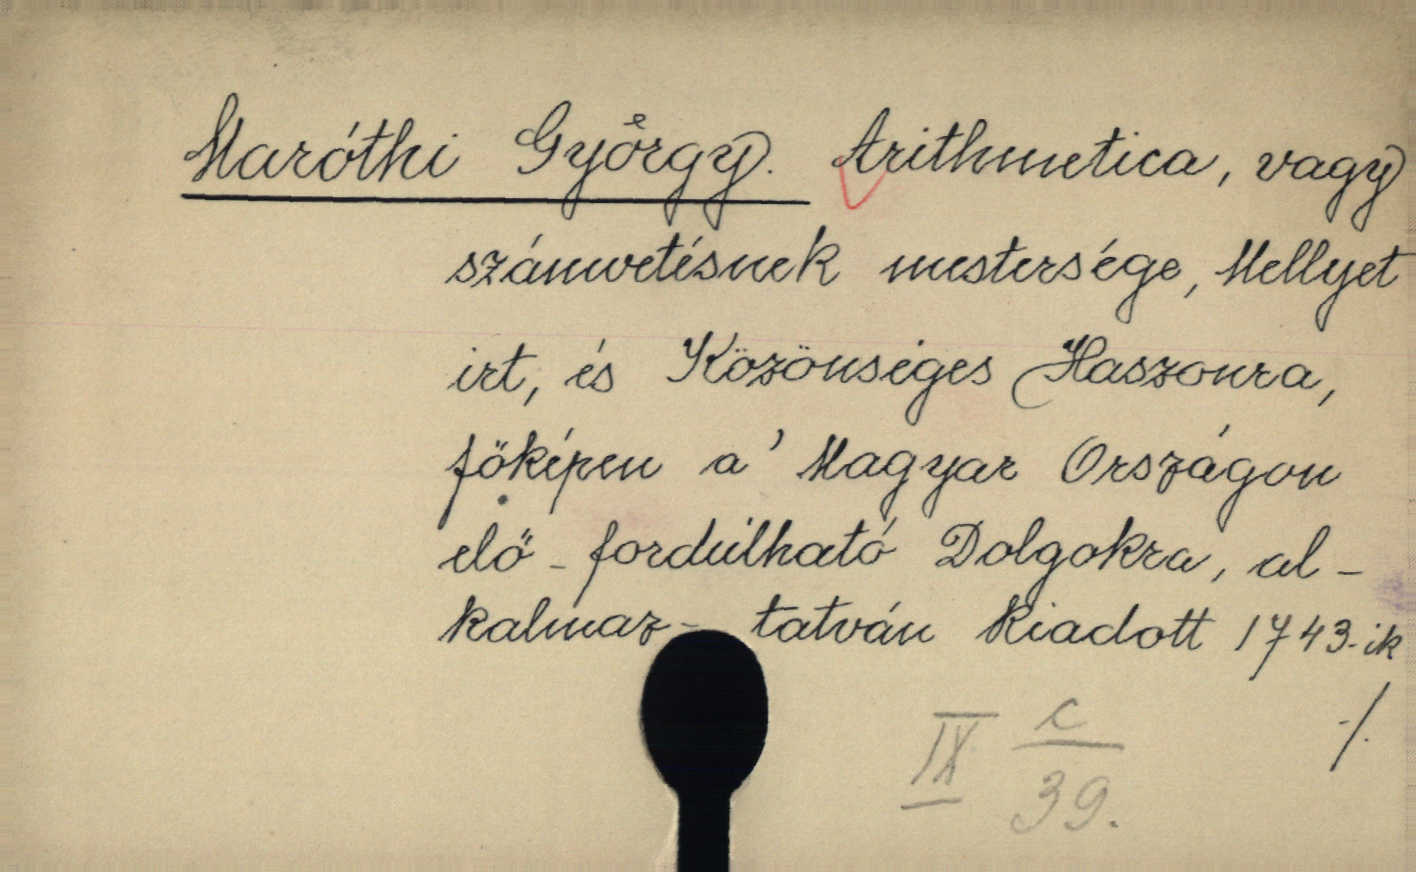 Maróthi György. Arithmetica, vagy
számvetésnek mestersége, Mellyet
irt, és Közönséges Haszonra,
főképen a' Magyar Országon
elő-fordúlható Dolgokra, al-
kalmaz- tatván kiadott 1743-ik
-/.
IX c/39.